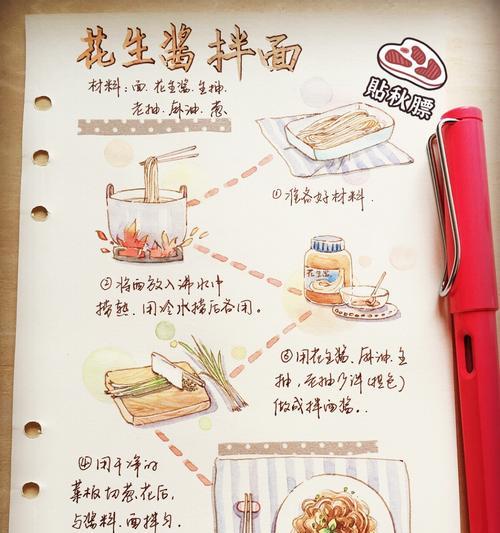 花生酱拌面
材料:面.花生酱.生抽.
老抽.麻油.葱
貼秋膘
①准备好材料.
②将面放入沸水中
捞熟.用冷水捞后备用。
花生酱
③用花生酱.麻油.生
抽,老抽少许(提色)
做成拌面酱..
④用干净的
菜板切葱花后,
与酱料.面拌匀.